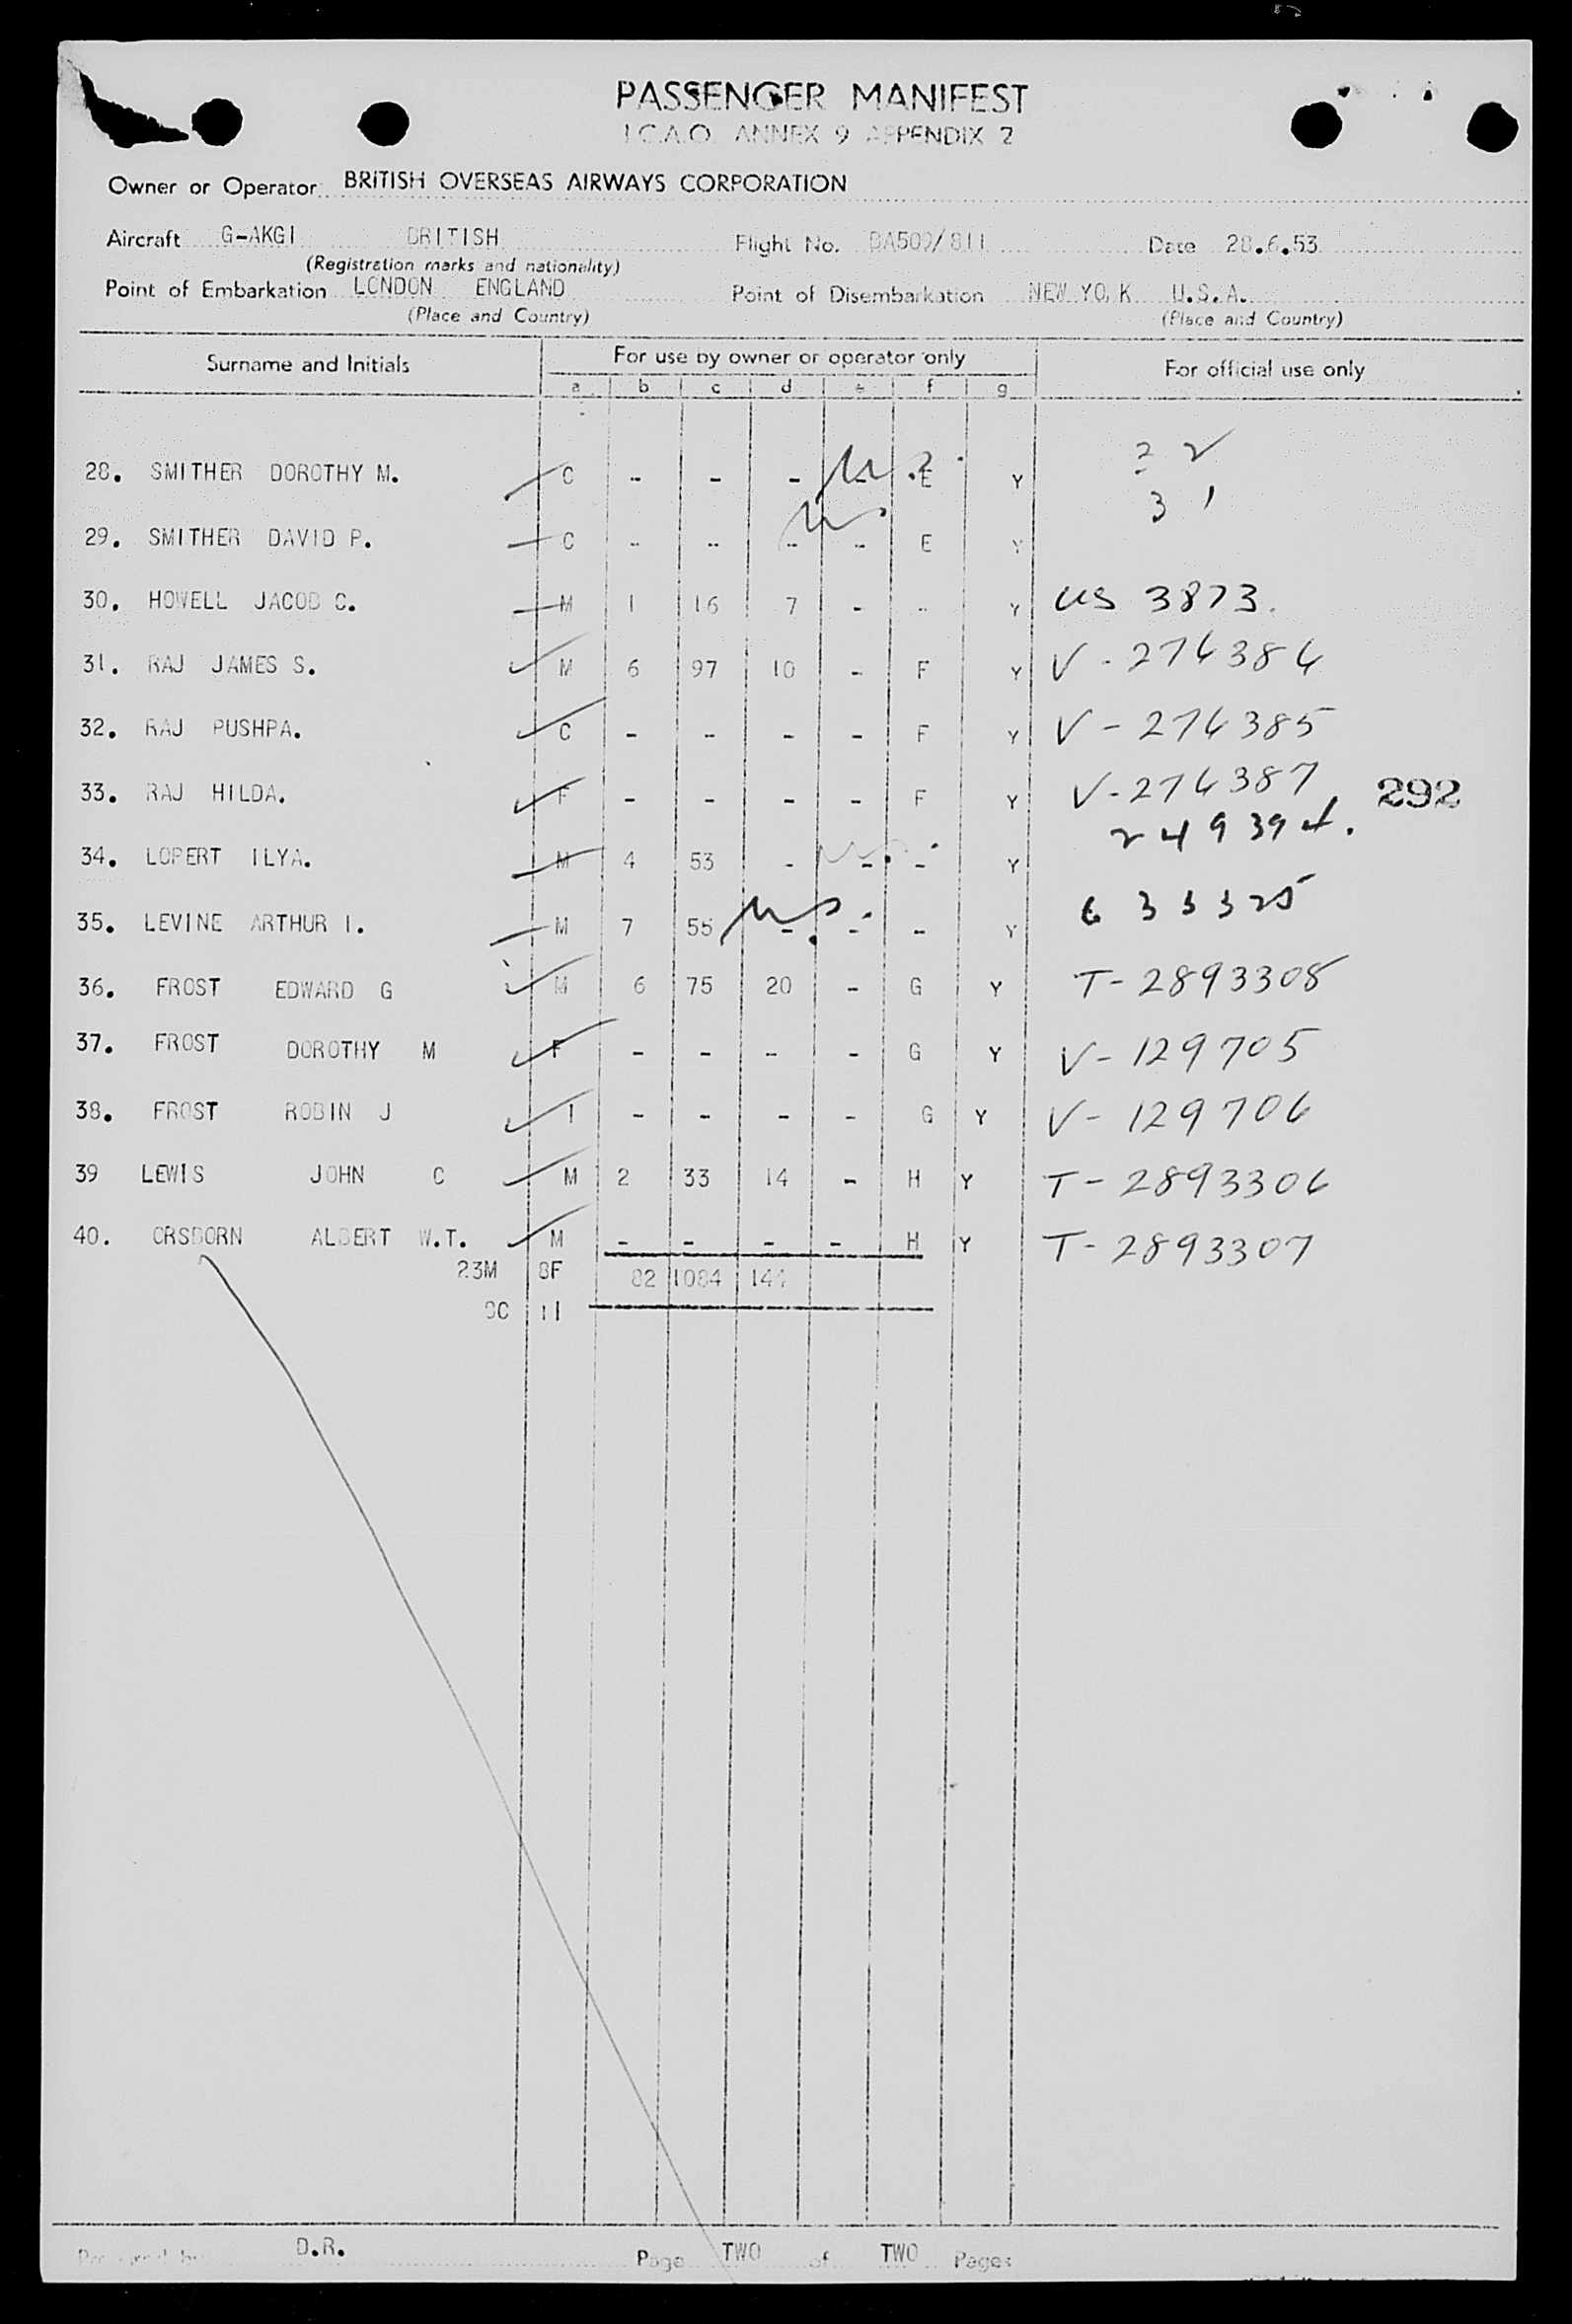 PASSENGER MANIFEST
I.C.A.O. ANNEX 9 APPENDIX 2
Owner or Operator BRITISH OVERSEAS AIRWAYS CORPORATION
Aircraft G-AKGI BRITISH Flight No. BA509/811 Date 28.6.53
(Registration marks and nationality)
Point of Embarkation LONDON ENGLAND Point of Disembarkation NEW YO K U.S.A.
(Place and Country) (Place and Country)
Surname and Initials For use by owner or operator only For official use only
a b c d e f g
28. SMITHER DOROTHY M. C - - - - E Y 2 2
3 1
29. SMITHER DAVID P. C - - - - E Y
30. HOWELL JACOB C. M 1 16 7 - - Y US 3873.
31. RAJ JAMES S. M 6 97 10 - F Y V-276386
32. RAJ PUSHPA. C - - - - F Y V-276385
33. RAJ HILDA. F - - - - F Y V-276387 292
34. LOPERT ILYA. M 4 53 - - - Y 249394.
35. LEVINE ARTHUR I. M 7 55 - - - Y 633325
36. FROST EDWARD G M 6 75 20 - G Y T-2893308
37. FROST DOROTHY M F - - - - G Y V-129705
38. FROST ROBIN J I - - - - G Y V-129706
39 LEWIS JOHN C M 2 33 14 - H Y T-2893306
40. ORSBORN ALBERT W.T. M - - - - H Y T-2893307
23M 8F 82 1084 144
8C 1I
D.R. Page TWO of TWO Pages